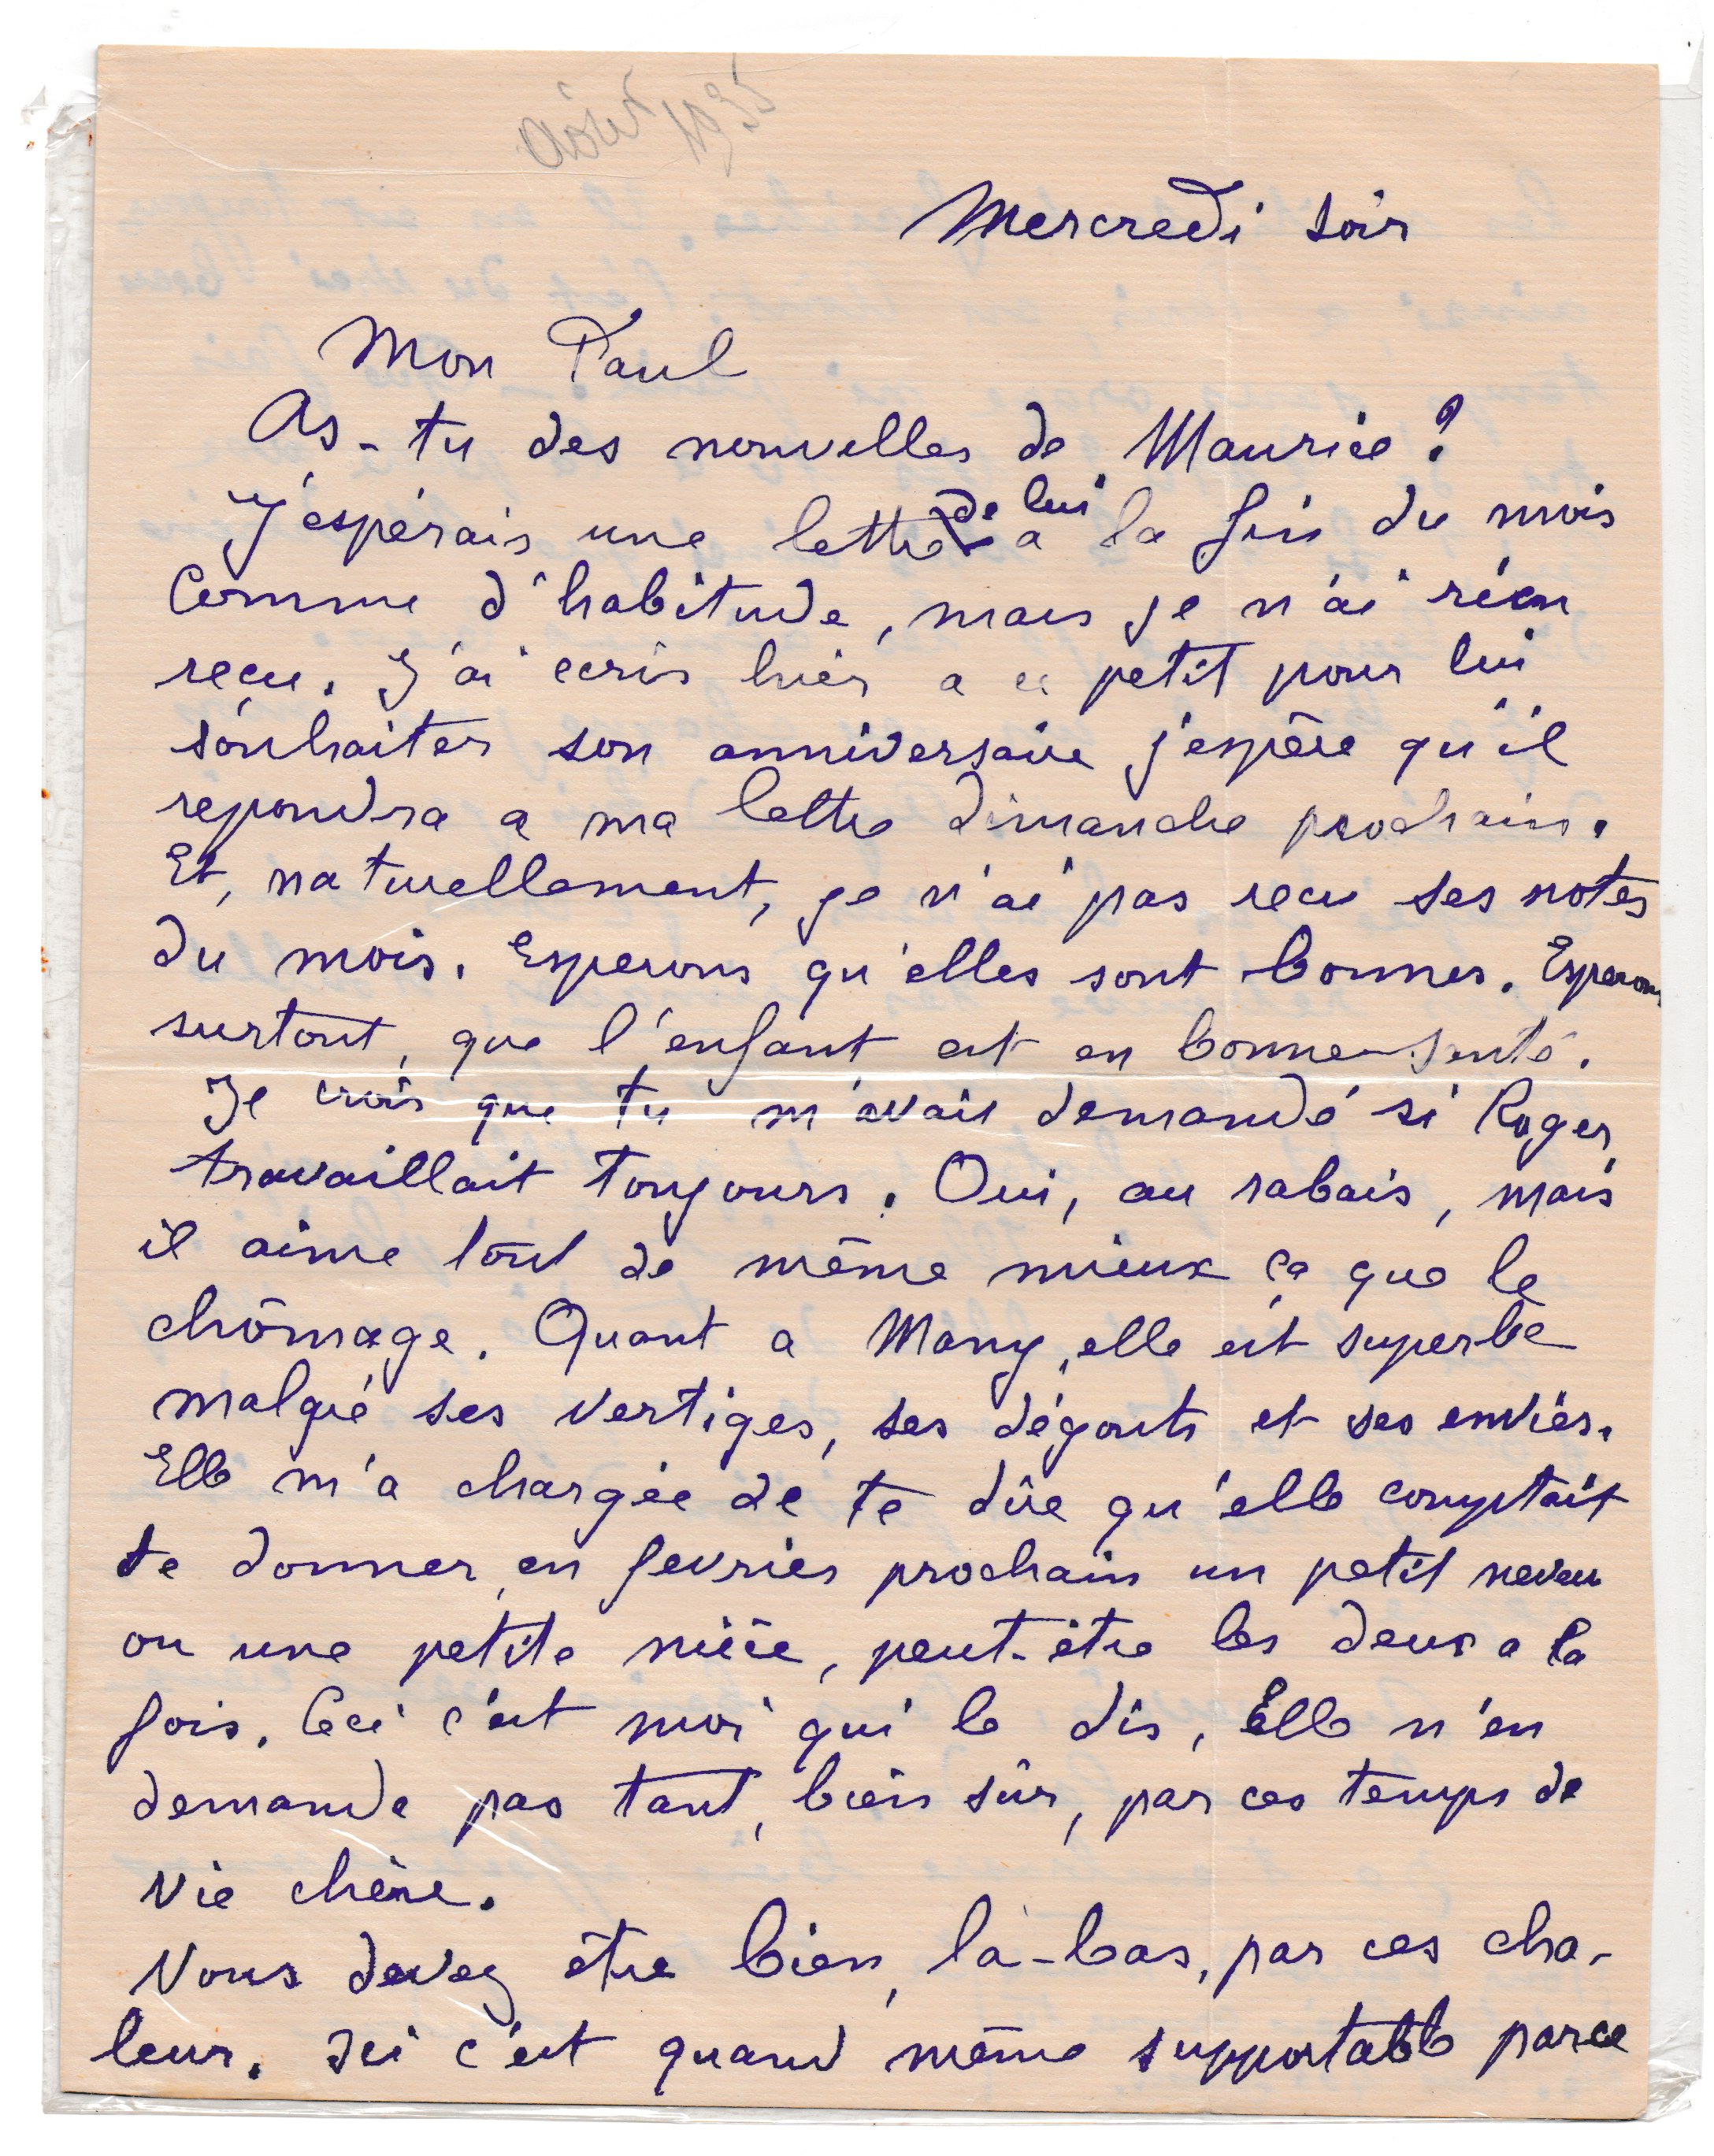 Mercredi soir
Mon Paul
As-tu des nouvelles de Maurice ?
J'espérais une lettre de lui a la fin du mois
Comme d'habitude, mais je n'ai rien
recu. J'ai ecris hier a ce petit pour lui
souhaiter son anniversaire j'espère qu'il
repondra a ma lettre dimanche prochain.
Et, naturellement, je n'ai pas recu ses notes
du mois. Esperons qu'elles sont bonnes. Esperons
surtout, que l'enfant est en bonne santé.
Je crois que tu m'avais demandé si Roger
travaillait toujours. Oui, au rabais, mais
il aime tout de même mieux ça que le
chômage. Quant a Many, elle est superbe
malgré ses vertiges, ses dégouts et ses envies.
Elle m'a chargée de te dire qu'elle comptait
te donner, en fevrier prochain un petit neveu
ou une petite nièce, peut-être les deux a la
fois. Ceci c'est moi qui le dis, Elle n'en
demande pas tant, bien sûr, par ces temps de
vie chère.
Vous devez être bien, là-bas, par ces cha-
leur. Ici c'est quand même supportable parce